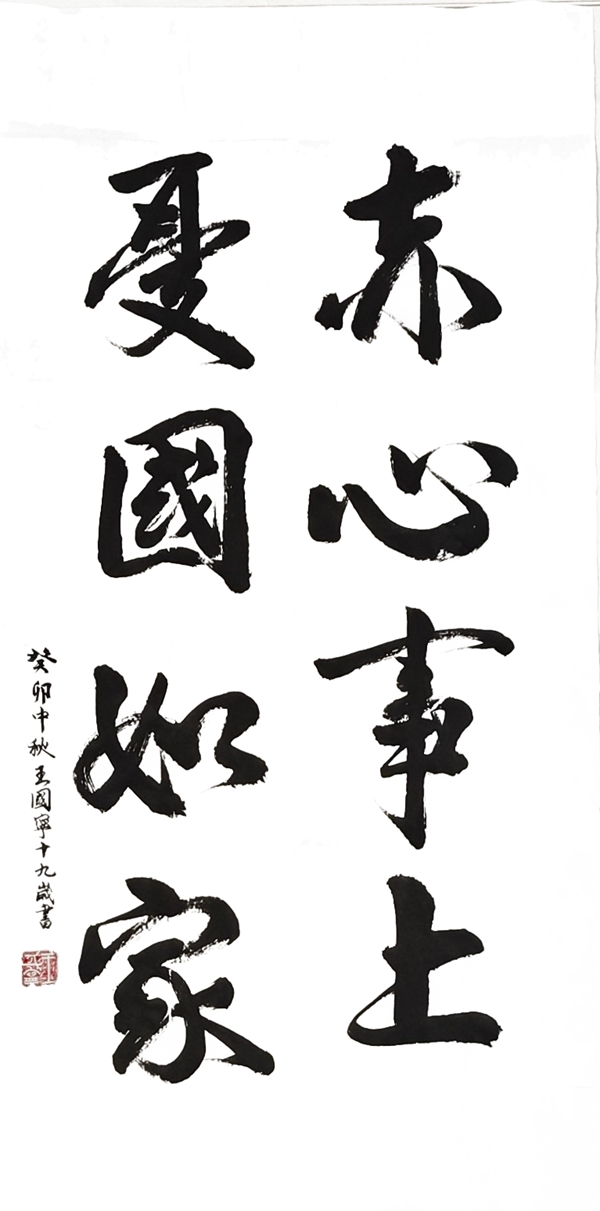 赤心事上
憂國如家
癸卯中秋王國寧十九歲書